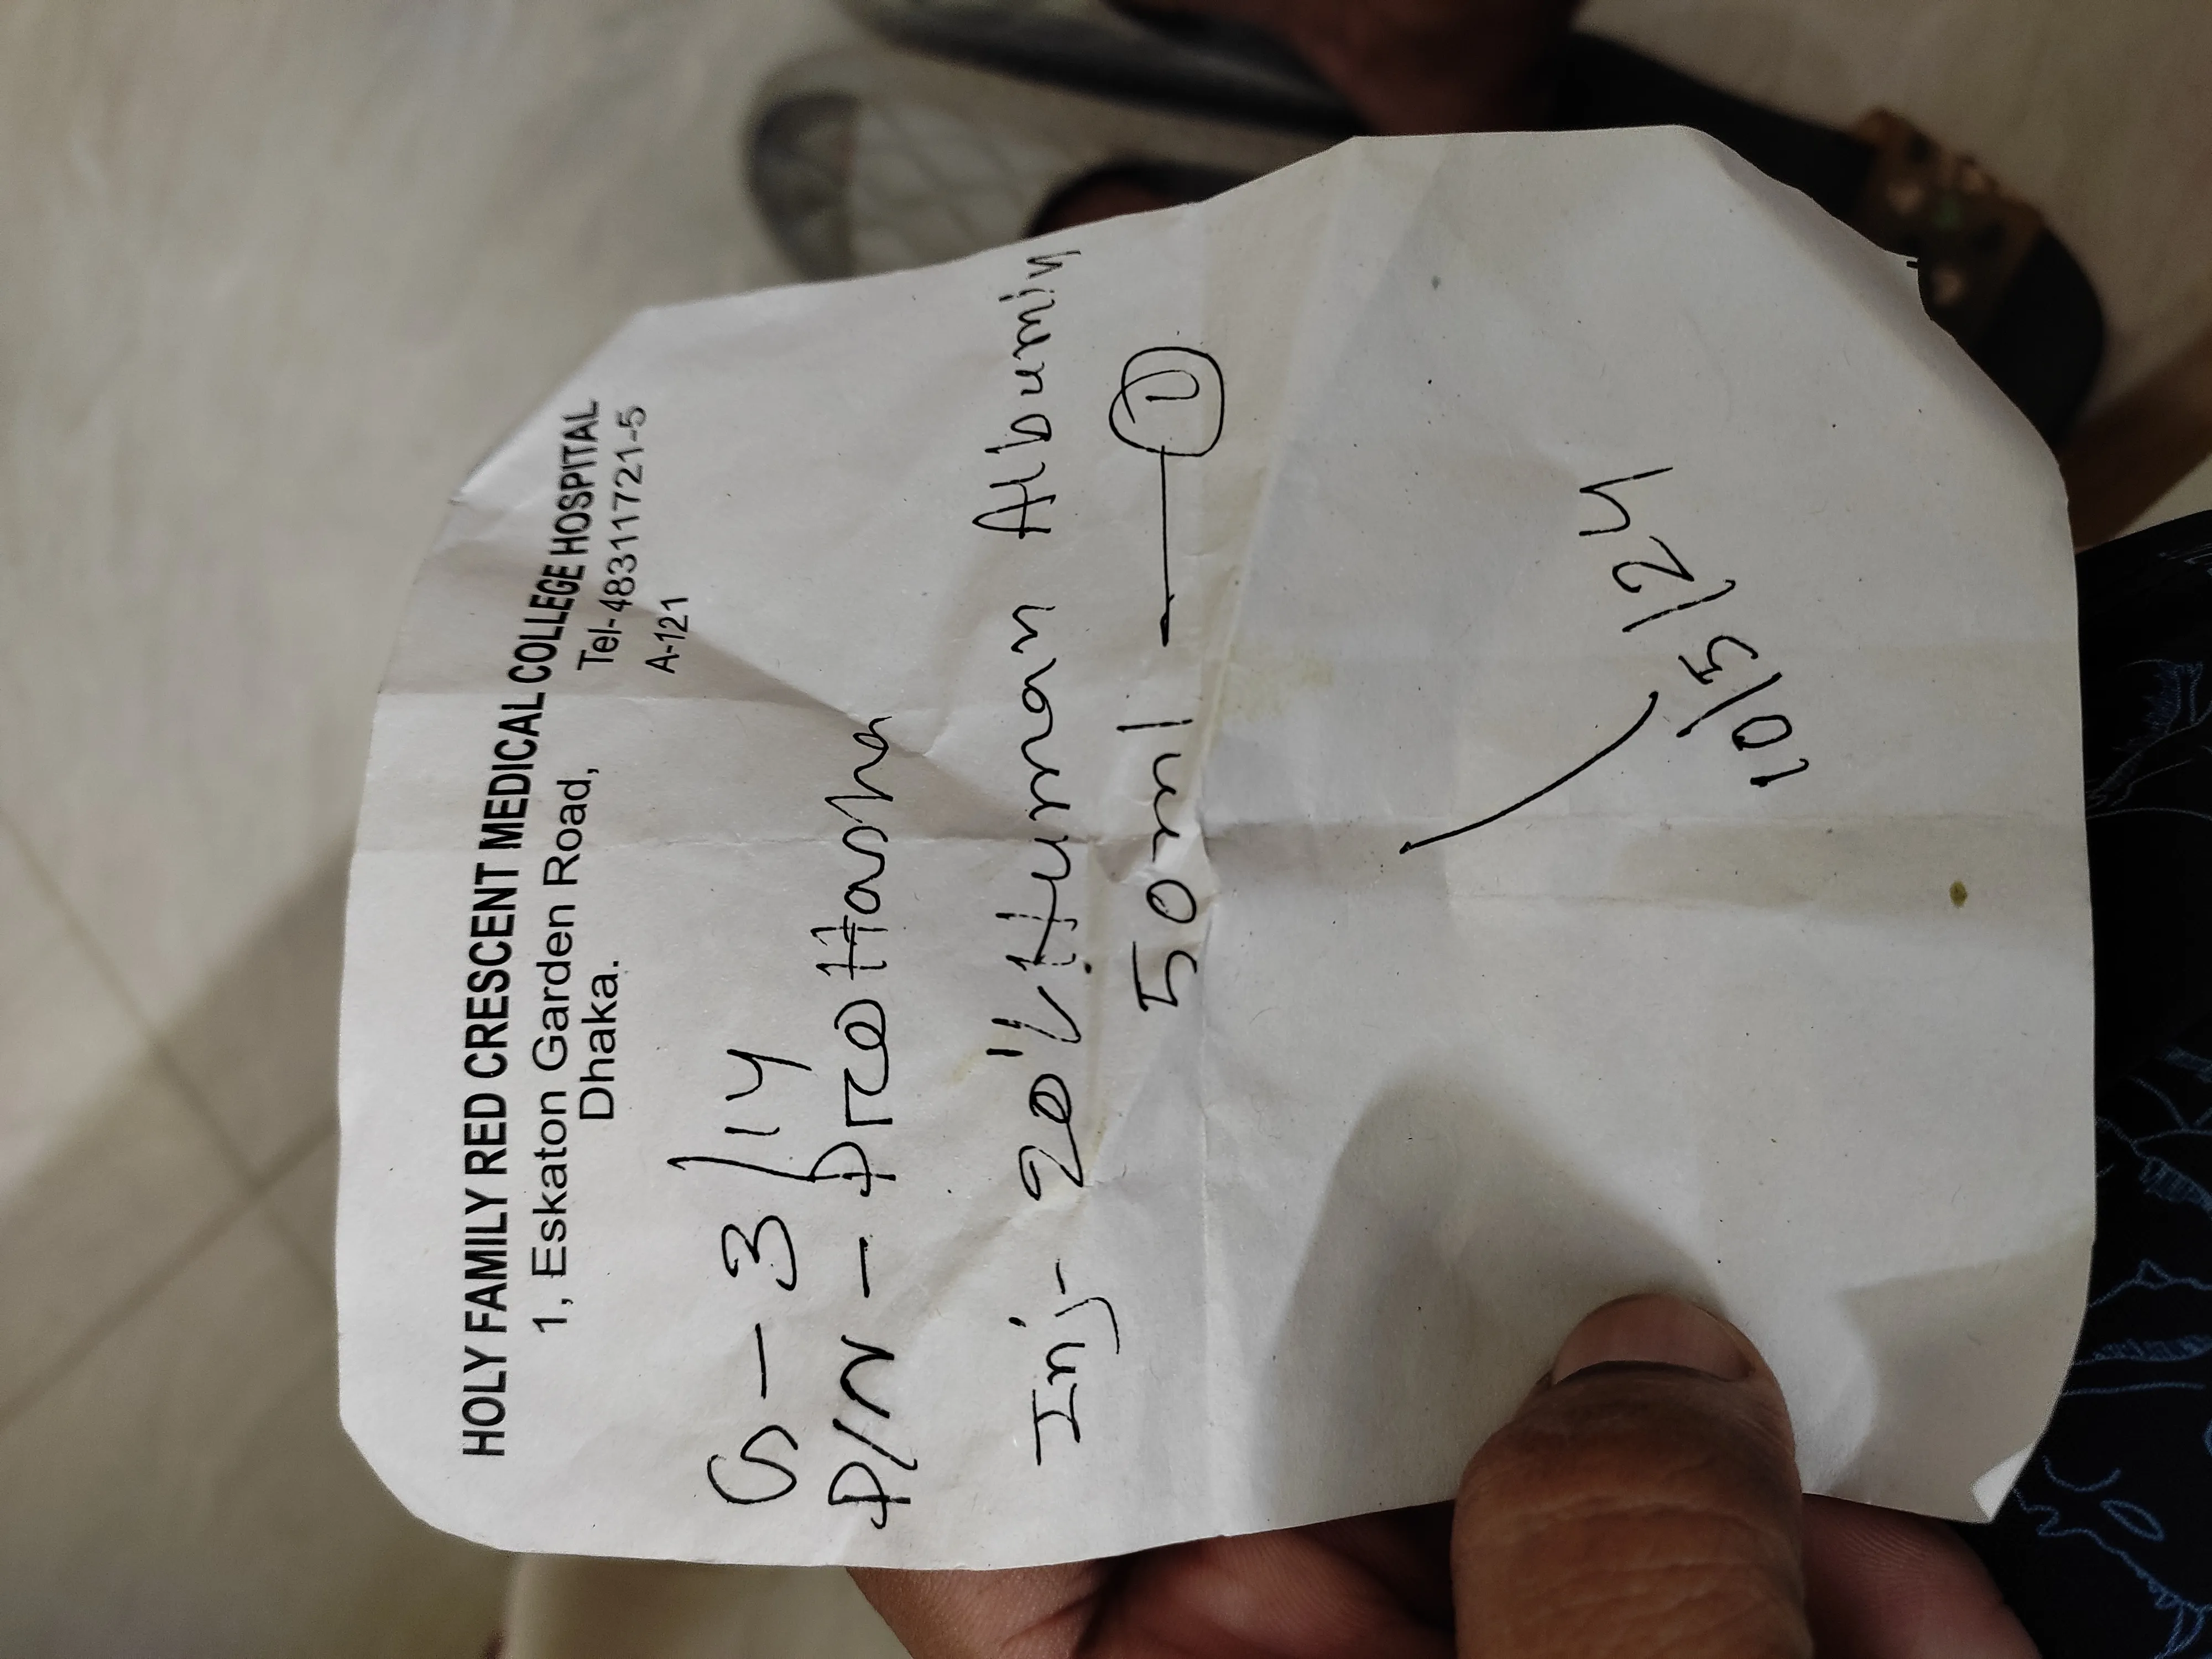 HOLY FAMILY RED CRESCENT MEDICAL COLLEGE HOSPITAL
1, Eskaton Garden Road, Tel- 48311721-5
Dhaka. A-121
G - 3/14
P/N - Preottasha
Inj- 20% Human Albumin
50ml — 1
10/5/24